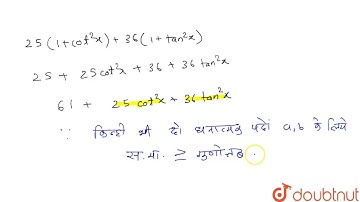 25(1+cot²x)+36(1+tan²x)
25 + 25cot²x + 36 + 36tan²x
61 + 25 cot²x + 36 tan²x
∵ किन्ही भी दो धनात्मक पदों a,b के लिये
स.मा. ≥ गुणोत्तर
doubtnut